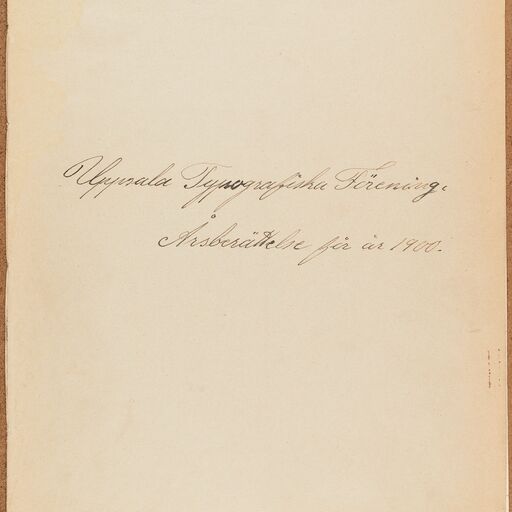 Uppsala Typografiska Förening.
Årsberättelse för år 1900.